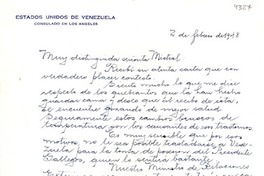 4354
ESTADOS UNIDOS DE VENEZUELA
CONSULADO EN LOS ANGELES
2 de febrero 1948
Muy distinguida señorita Mistral.
Recibí su atenta carta que con
verdadero placer contesto.
Siento mucho lo que me dice
respecto de los quebrantos que la han hecho
guardar cama y deseo que al recibo de esta,
se encuentre gozando de salud.
Seguramente estos cambios bruscos de
temperatura, son los causantes de sus trastornos.
Es muy sensible que por esos
motivos, no le sea posible trasladarse a Vene-
zuela para la toma de posesión del Presidente
Gallegos, quien la sentirá bastante.
Nuestro Ministro de Relaciones